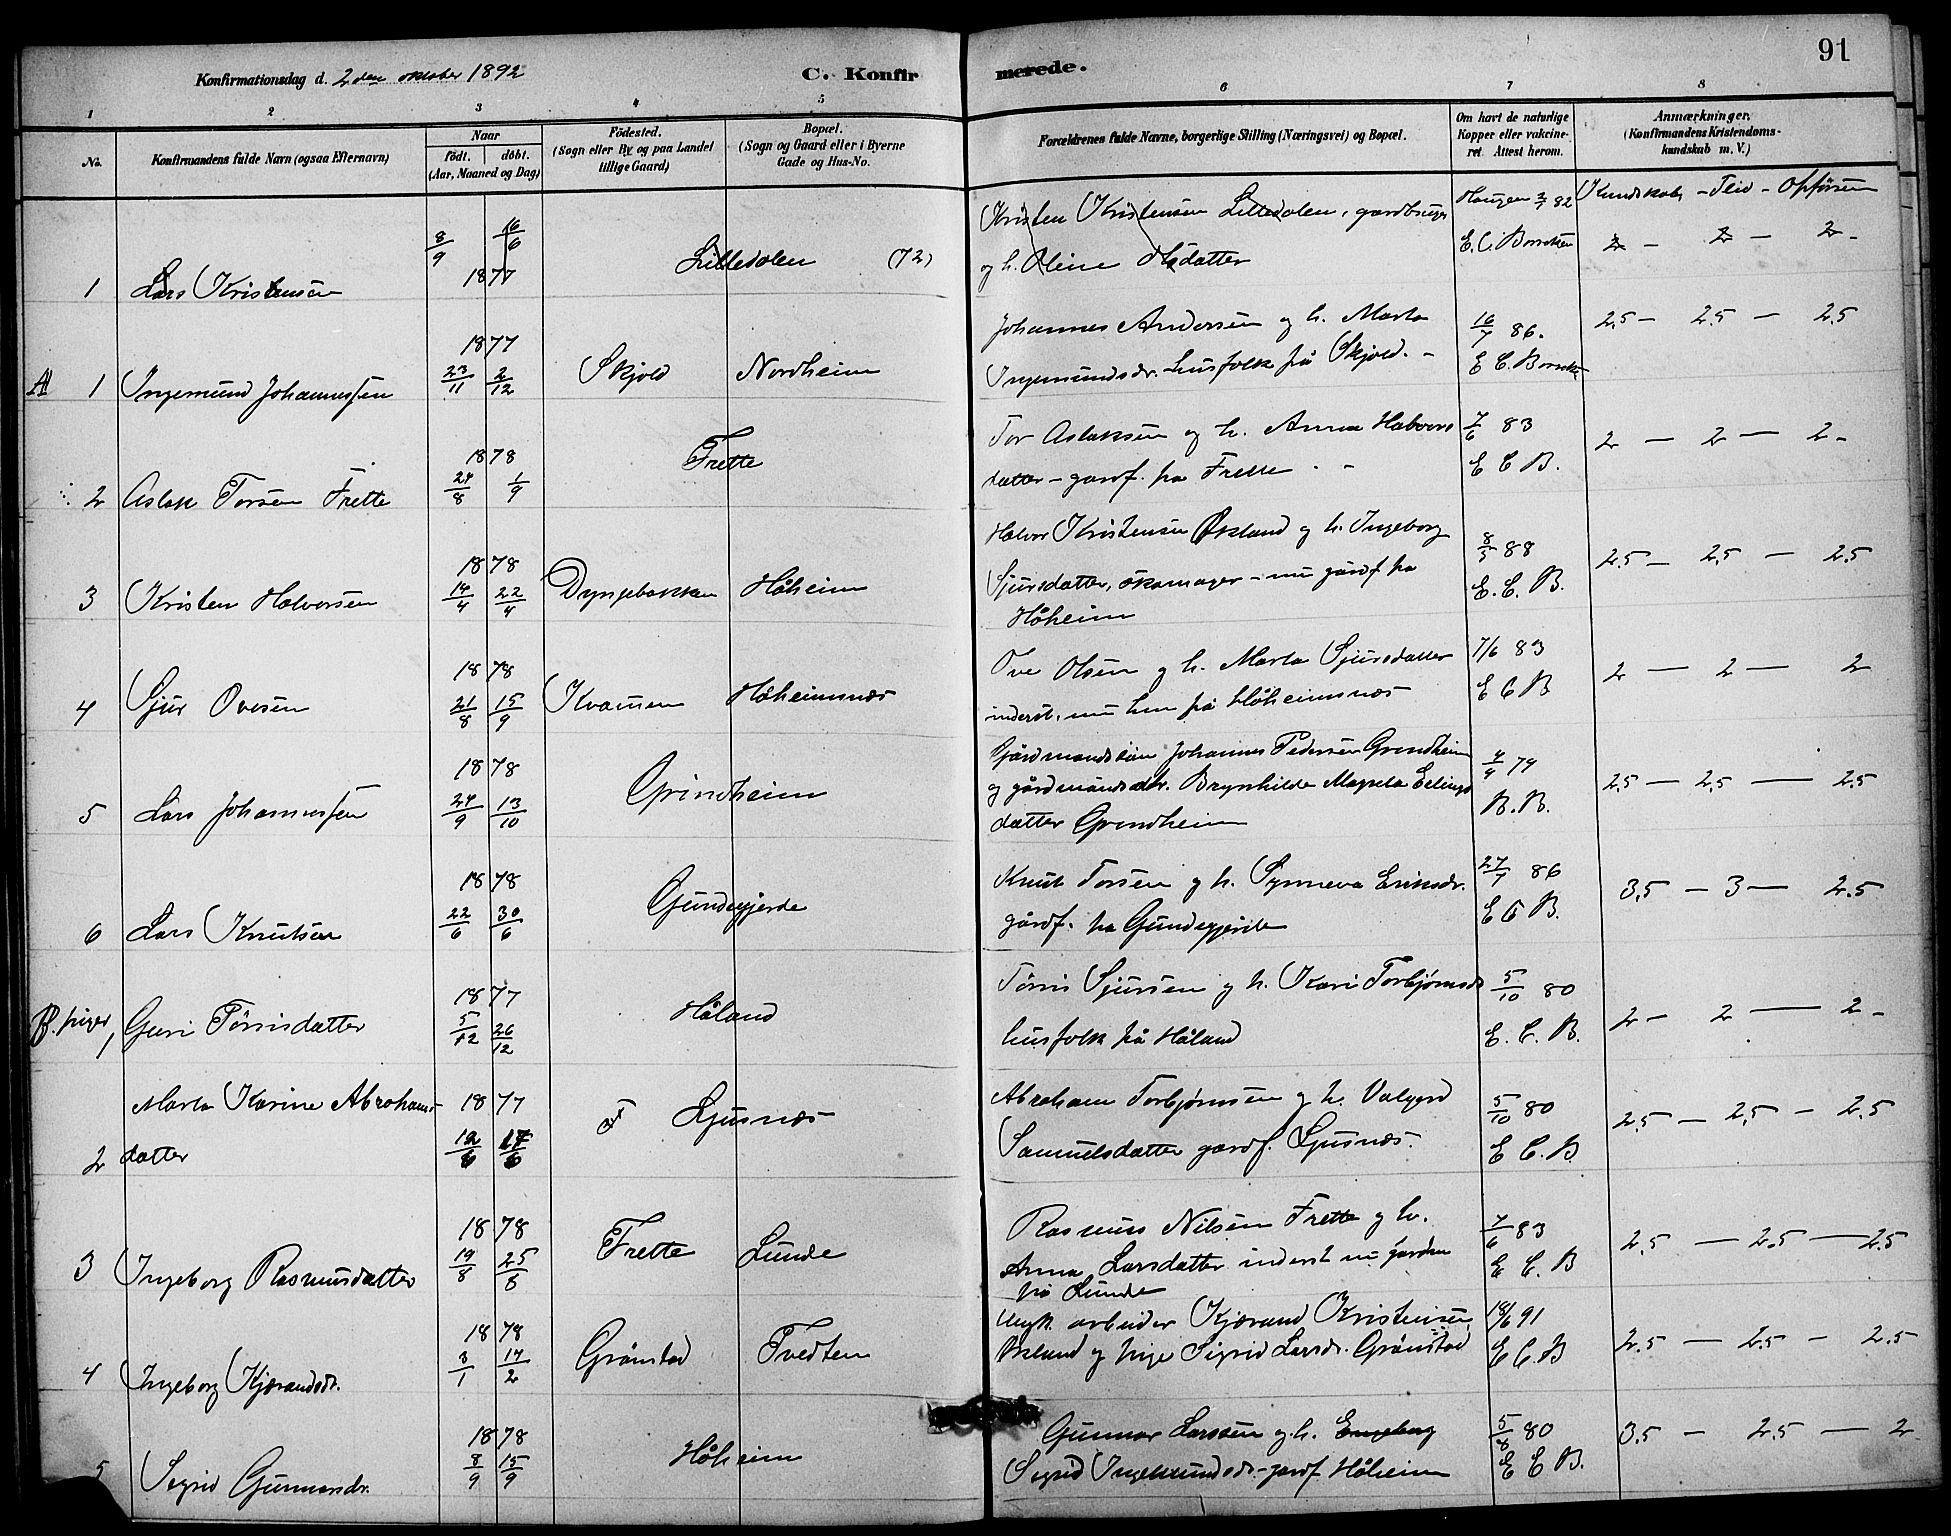 91
Konfirmationsdag d. 2den oktober 1892
C. Konfirmerede.
1 2 3 4 5 6 7 8
No.
Konfirmandens fulde Navn (ogsaa Efternavn)
Naar
födt. döbt.
(Aar, Maaned og Dag)
Födested.
(Sogn eller By og paa Landet
tillige Gaard)
Bopæl.
(Sogn og Gaard eller i Byerne
Gade og Hus-No.
Forældrenes fulde Navne, borgerlige Stilling (Næringsvei) og Bopæl.
Om havt de naturlige
Kopper eller vakcine-
ret. Attest herom.
Anmærkninger.
(Konfirmandens Kristendoms-
kundskab m. V.)
Kundskab - Flid - Opførsel
1 Lars Kristensen
8/9 16/6
1877
Lilledalen (72)
Kristen Kristensen Lilledalen, gardbruger
og h. Oline datter
Haugen 82
2 - 2 - 2 -
A 1 Ingemund Johannessen
1877
23/11 2/12
Skjold Nordheim
Johannes Andersen og h. Marta
Ingemundsdr. husfolk på Skjold. -
16/7 86.
2,5 - 2,5 - 2,5
2 Aslak Torsen Frette
1878
24/8 1/9
Frette
Tor Aslaksen og h. Anna Halvors
datter - gardf. på Frette
7/6 83
E C B.
2 - 2 - 2 -
3 Kristen Halversen
1878
14/4 22/4
Dyngebakken Håheim
Halvor Kristensen Øksland og h. Ingeborg
Sjursdatter, skomager - nu gårdf på
Håheim
8/5 88
E. C. B.
2,5 - 2,5 - 2,5
4 Sjur Ovesen
1878
21/8 15/9
Kvamen Håheimsnæs
Ove Olsen og h. Marta Sjursdatter
inderst, nu hm på Håheimsnæs
7/6 83
E C B
2 - 2 - 2
5 Lars Johannessen
1878
24/9 13/10
Grindheim
Gårdmandssøn Johannes Pedersen Grindheim
og gårdmandsdtr. Brynhilde Magrela Elings
datter Grindheim
4/9 79
B. B.
2,5 - 2,5 - 2,5
6 Lars Knutsen
1878
22/6 30/6
Gundegjerde
Knut Torsen og h. Synneva Eriksdr.
gårdf. på Gundegjerde
27/7 86
E C B.
3,5 - 3 - 2,5
B. piger 1 Guri Tørrisdatter
1877
5/12 26/12
Håland
Tørris Sjursen og h. Kari Torbjørnsdr
husfolk på Håland
5/10 80
E. C. B.
2 - 2 - 2 -
2 Marta Karine Abrahams-
datter
1877
12/6 17/6
Ljusnæs
Abraham Torbjørnsen og h. Valgerd
Samuelsdatter gardf. Ljusnæs.
5/10 80
E C. B
2,5 - 2,5 - 2,5
3 Ingeborg Rasmusdatter
1878
19/8 25/8
Frette Lunde
Rasmus Nilsen Frette og h.
Anna Larsdatter inderst nu garden
på Lunde
7/6 83
E C. B
2,5 - 2,5 - 2,5
4 Ingeborg Kjærandsdr.
1878
3/1 17/2
Grønstad Tvedten
Ungk. arbeider Kjærand Kristensen
Øksland og pige Sigrid Larsdr. Grønstad
18/6 91
E C. B
2,5 - 2,5 - 2,5
5 Sigrid Gunnarsdr.
1878
8/9 15/9
Håheim
Gunnar Larssen og h. Engeborg
Sigrid Ingemundsdr. - gardf Håheim
5/8 80
E C B.
3,5 - 2,5 - 2